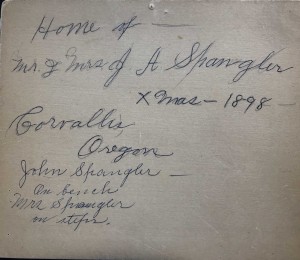 Home of —
Mr. & Mrs J A Spangler
Xmas – 1898 –
Corvallis,
Oregon
John Spangler —
On bench
Mrs Spangler
on steps.